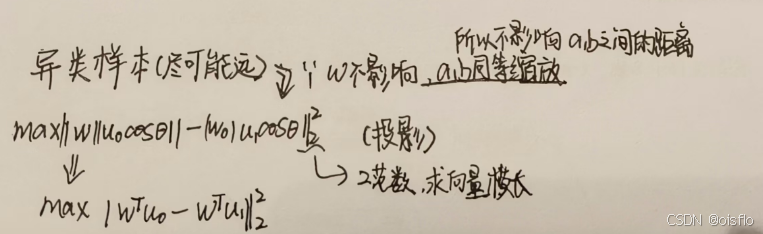 所以不影响a,b之间的距离
异类样本(尽可能远) ∵ w不影响,a,b同等缩放
max||w||u₀cosθ|| - |w₀|u₁cosθ||₂² (投影)
⇓ ↳ 2范数,求向量模长
max |wᵀu₀ - wᵀu₁||₂²
CSDN @oisflo